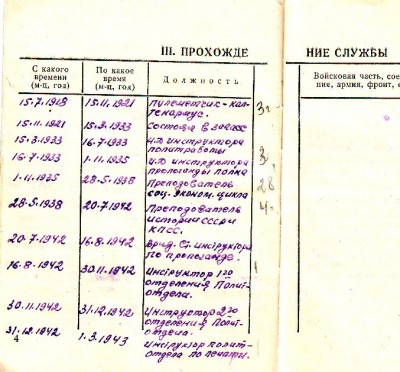 III. ПРОХОЖДЕ НИЕ СЛУЖБЫ
С какого времени (м-ц, год) По какое время (м-ц, год) Должность
Войсковая часть, сое
ние, армия, фронт,
15.7.1918 15.11.1921 Пулеметчик-кап-
тенармус. 3г
15.11.1921 15.3.1933 Состоял в запасе
15.3.1933 16.7.1933 И.Д инструктора
политработы
16.7.1933 1.11.1935 И.Д инструктора
пропаганды полка
1.11.1935 28.5.1938 Преподаватель
соц. эконом. цикла
28.5.1938 20.7.1942 Преподаватель
истории СССР и
КПСС.
20.7.1942 16.8.1942 Врид. Ст. инструктора
по пропаганде.
16.8.1942 30.11.1942 Инструктор 1го
отделения Полит-
отдела.
30.11.1942 31.12.1942 Инструктор 2го
отделения Полит-
отдела.
31.12.1942 1.3.1943 Инструктор полит-
отдела по печати.
4